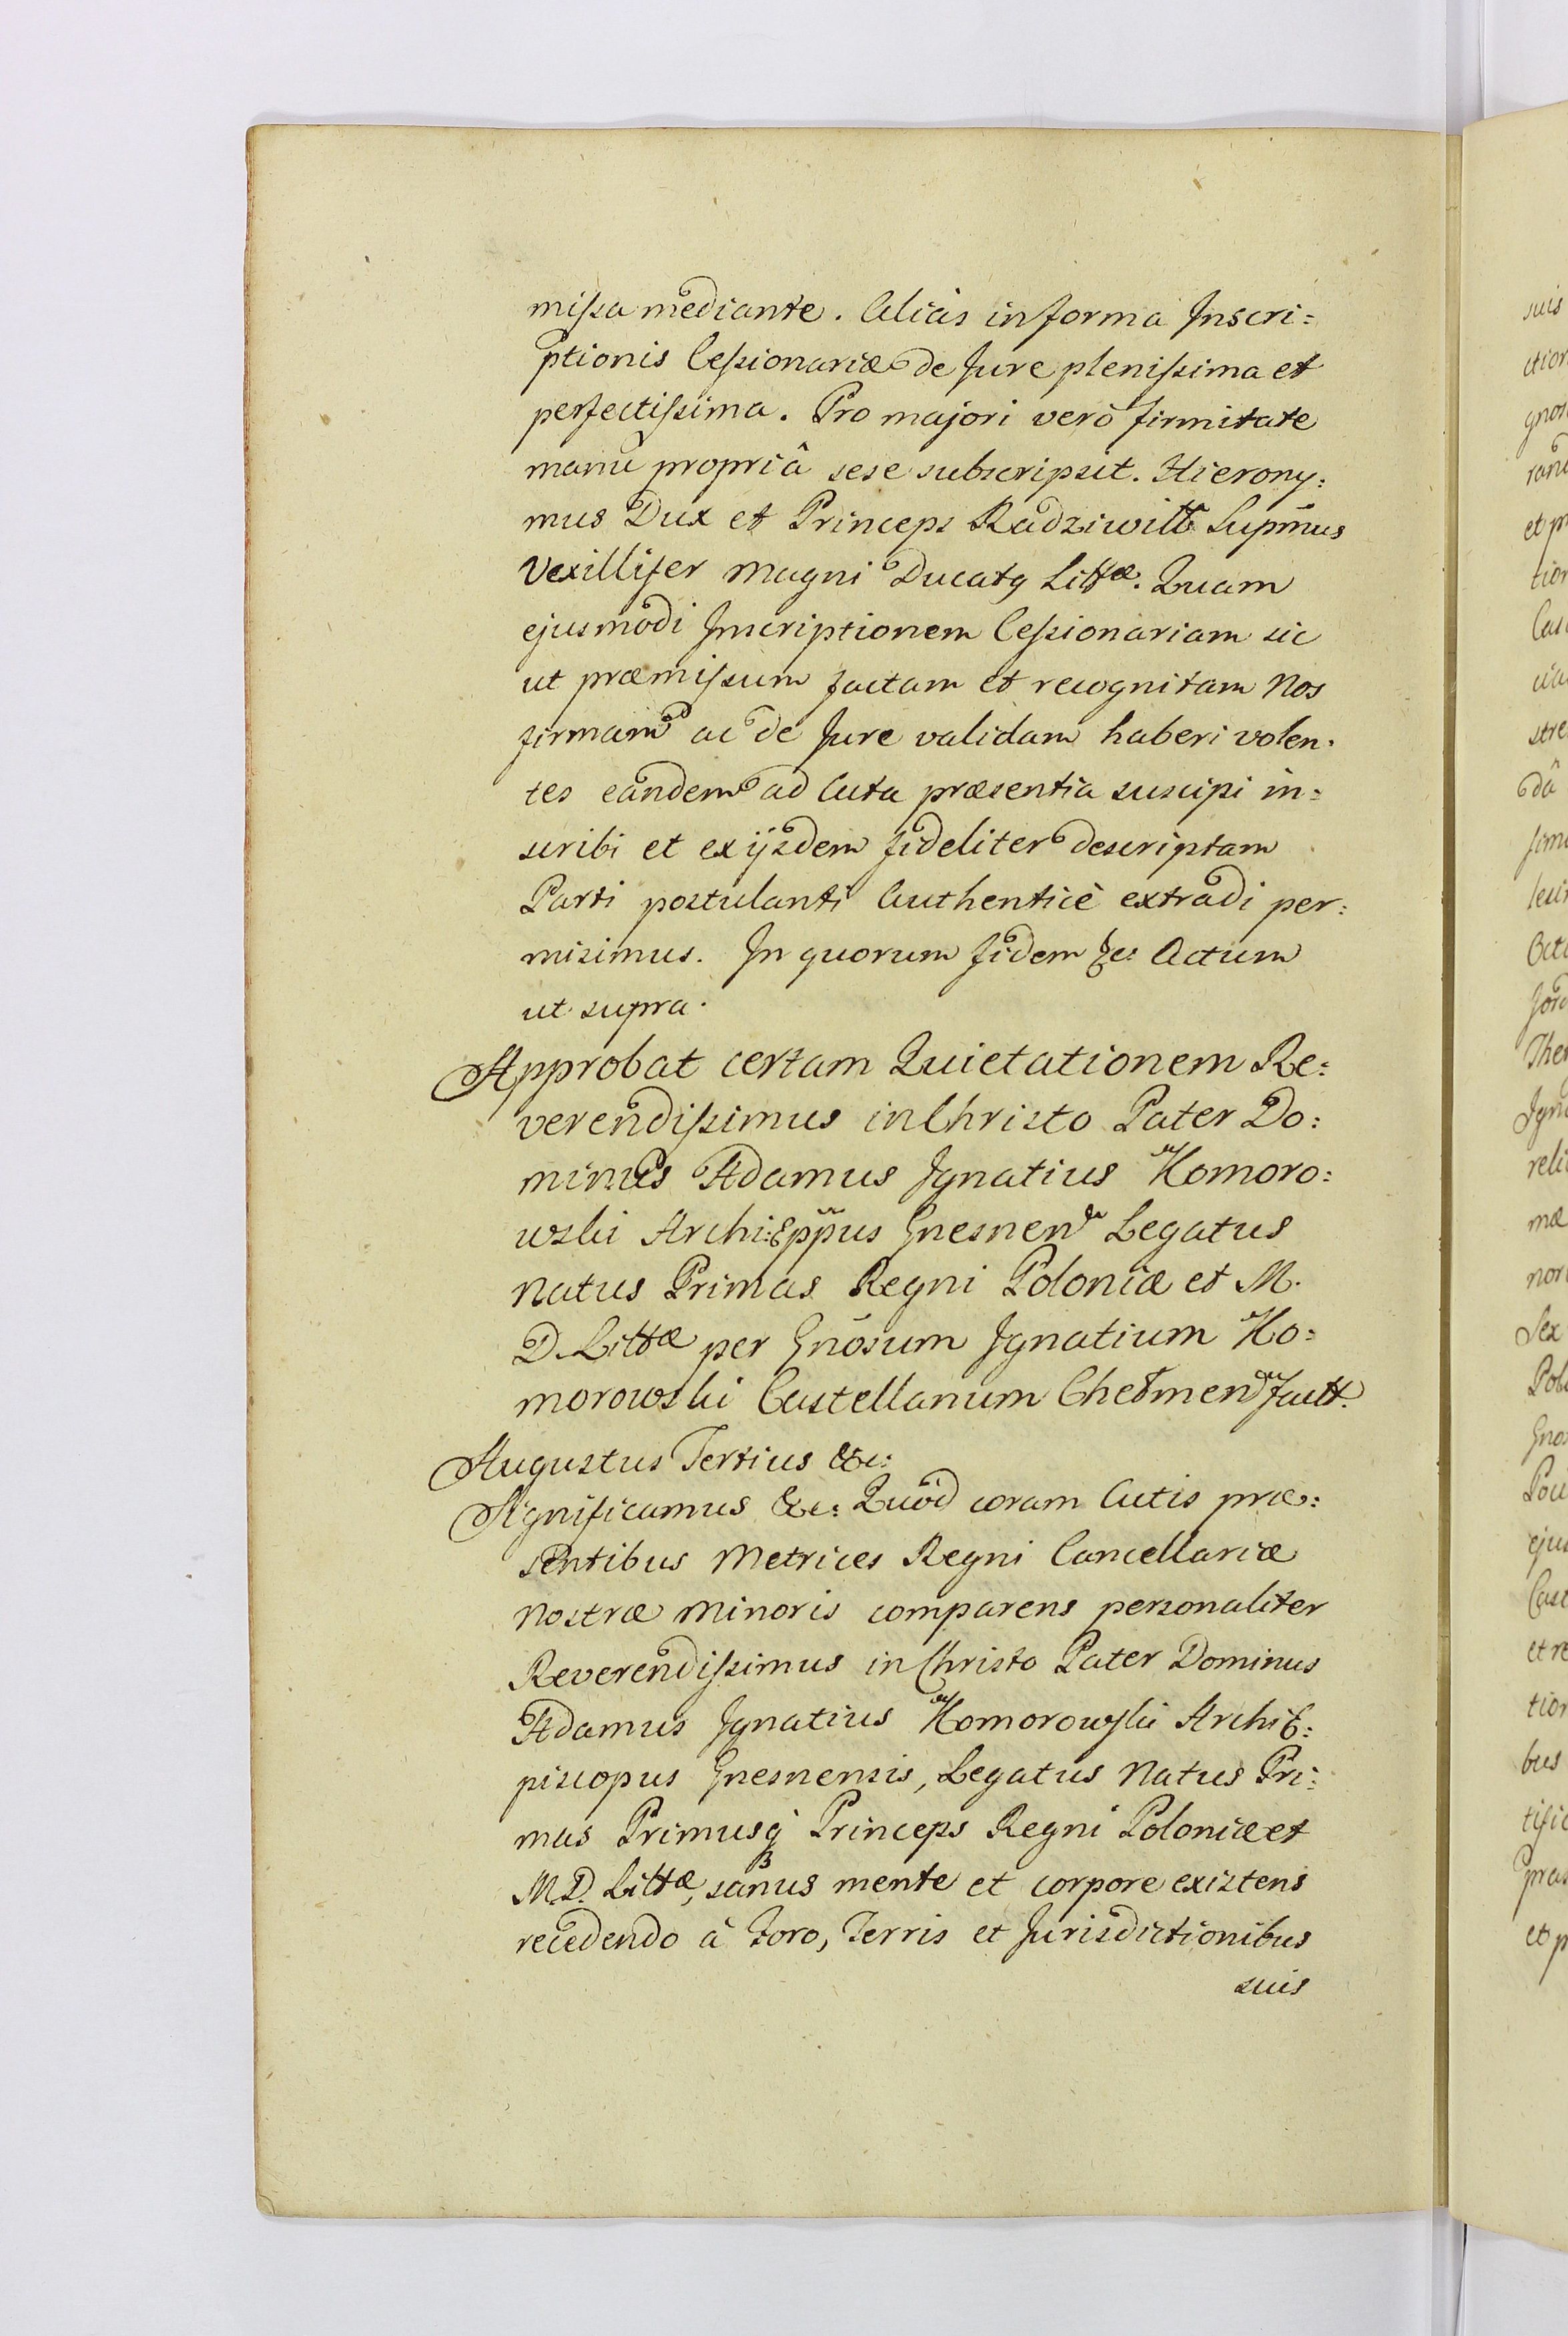 missa mediante. Aliàs in forma Inscri=
ptionis Cessionariæ de Jure plenissima et
perfectissima. Pro majori verò firmitate
manu propriâ sese subscripsit. Hierony:
mus Dux et Princeps Radziwiłł Supm̃us
Vexillifer Magni Ducatq Littæ. Quam
ejusmodi Inscriptionem Cessionariam sic
ut præmissum factam et recognitam Nos
firmam ac de Jure validam haberi volen.
tes eandem ad Acta præsentia suscipi in=
scribi et ex ijsdem fideliter descriptam
Parti postulanti Authenticè extradi per:
misimus. In quorum fidem &c: Actum
ut supra.
Approbat certam Quietationem Re:
verendissimus in Christo Pater Do:
minus Adamus Ignatius Komoro:
wski Archi:Epp̃us Gnesnen Legatus
Natus Primas Regni Poloniæ et M.
D. Littæ per Gnõsum Ignatium Ko=
morowski Castellanum Chełmen factt.
Augustus Tertius &c:
Significamus &c: Quòd coram Actis præ:
sentibus Metrices Regni Cancellariæ
Nostræ Minoris comparens personaliter
Reverendissimus in Christo Pater Dominus
Adamus Ignatius Komorowski Archi E:
piscopus Gnesnensis, Legatus Natus Pri:
mas Primusq Princeps Regni Poloniæ et
M.D. Littæ, sanus mente et corpore existens
recedendo à Foro, Terris et Jurisdictionibus
suis